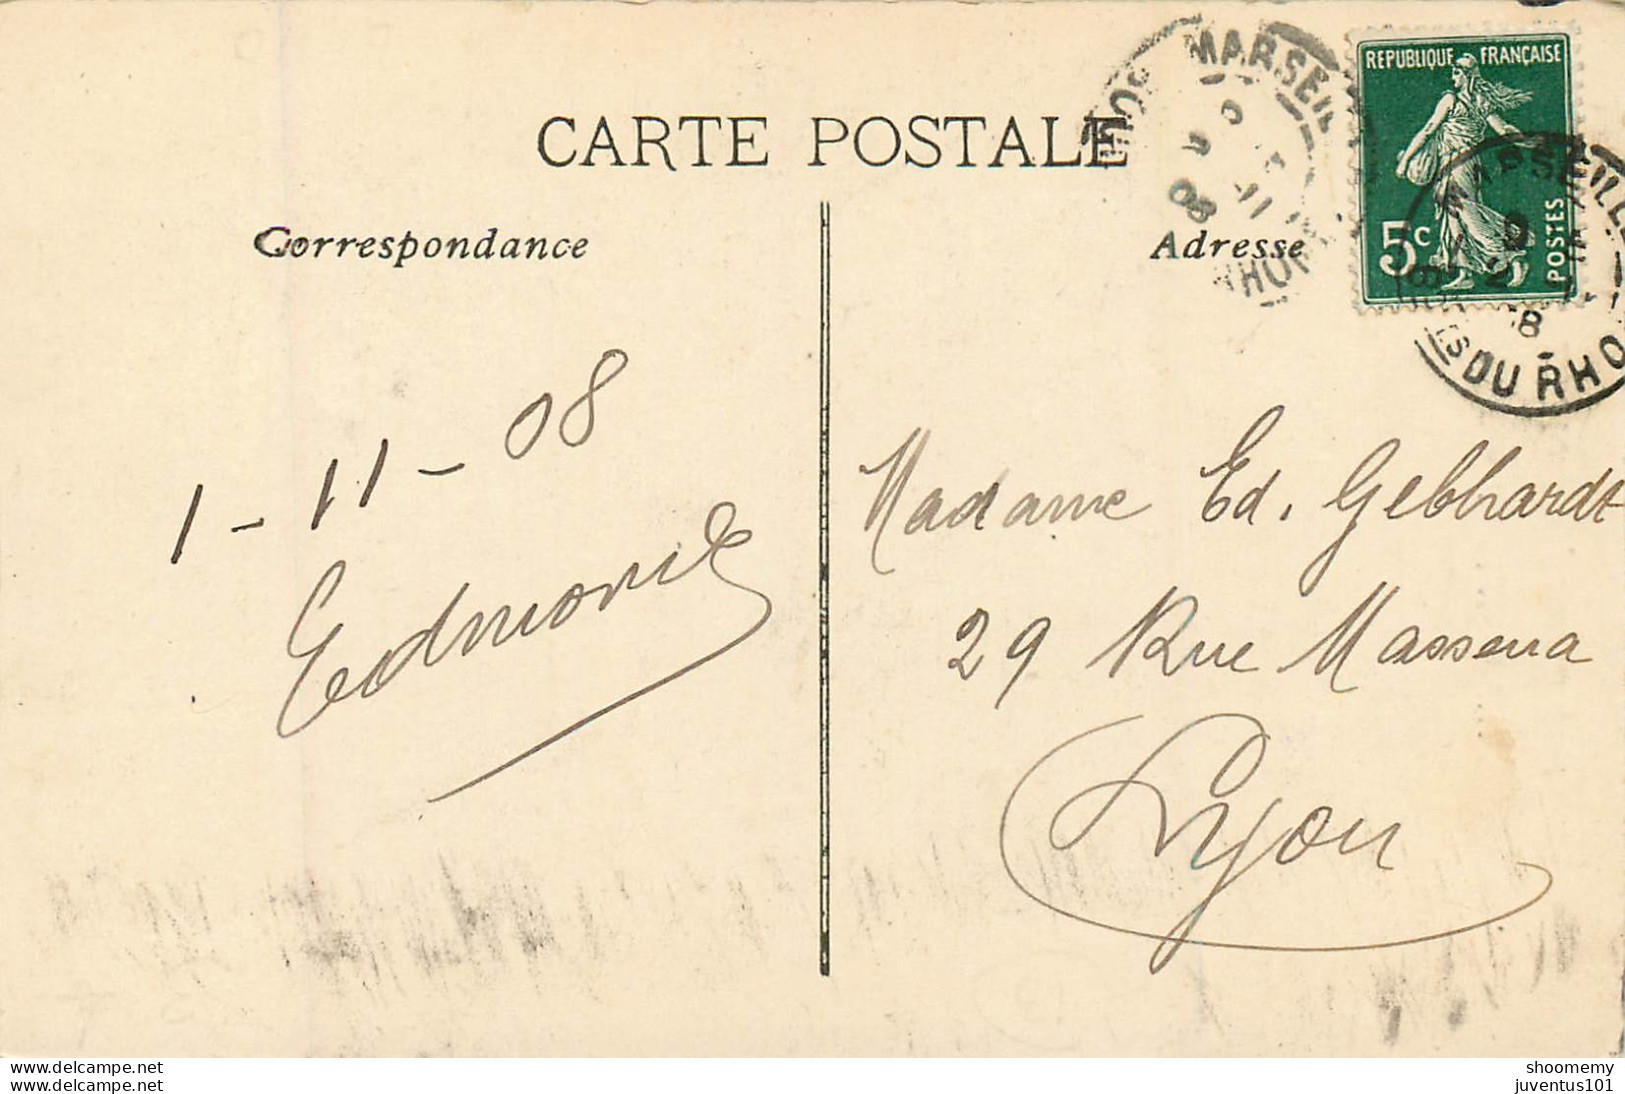 CARTE POSTALE
Correspondance
Adresse
REPUBLIQUE FRANÇAISE
5c
POSTES
MARSEILLE
DU RHO
1-11-08
Edmond
Madame Ed. Gebhardt
29 Rue Massena
Lyon
delcampe.net
delcampe.net
shoomemy
juventus101